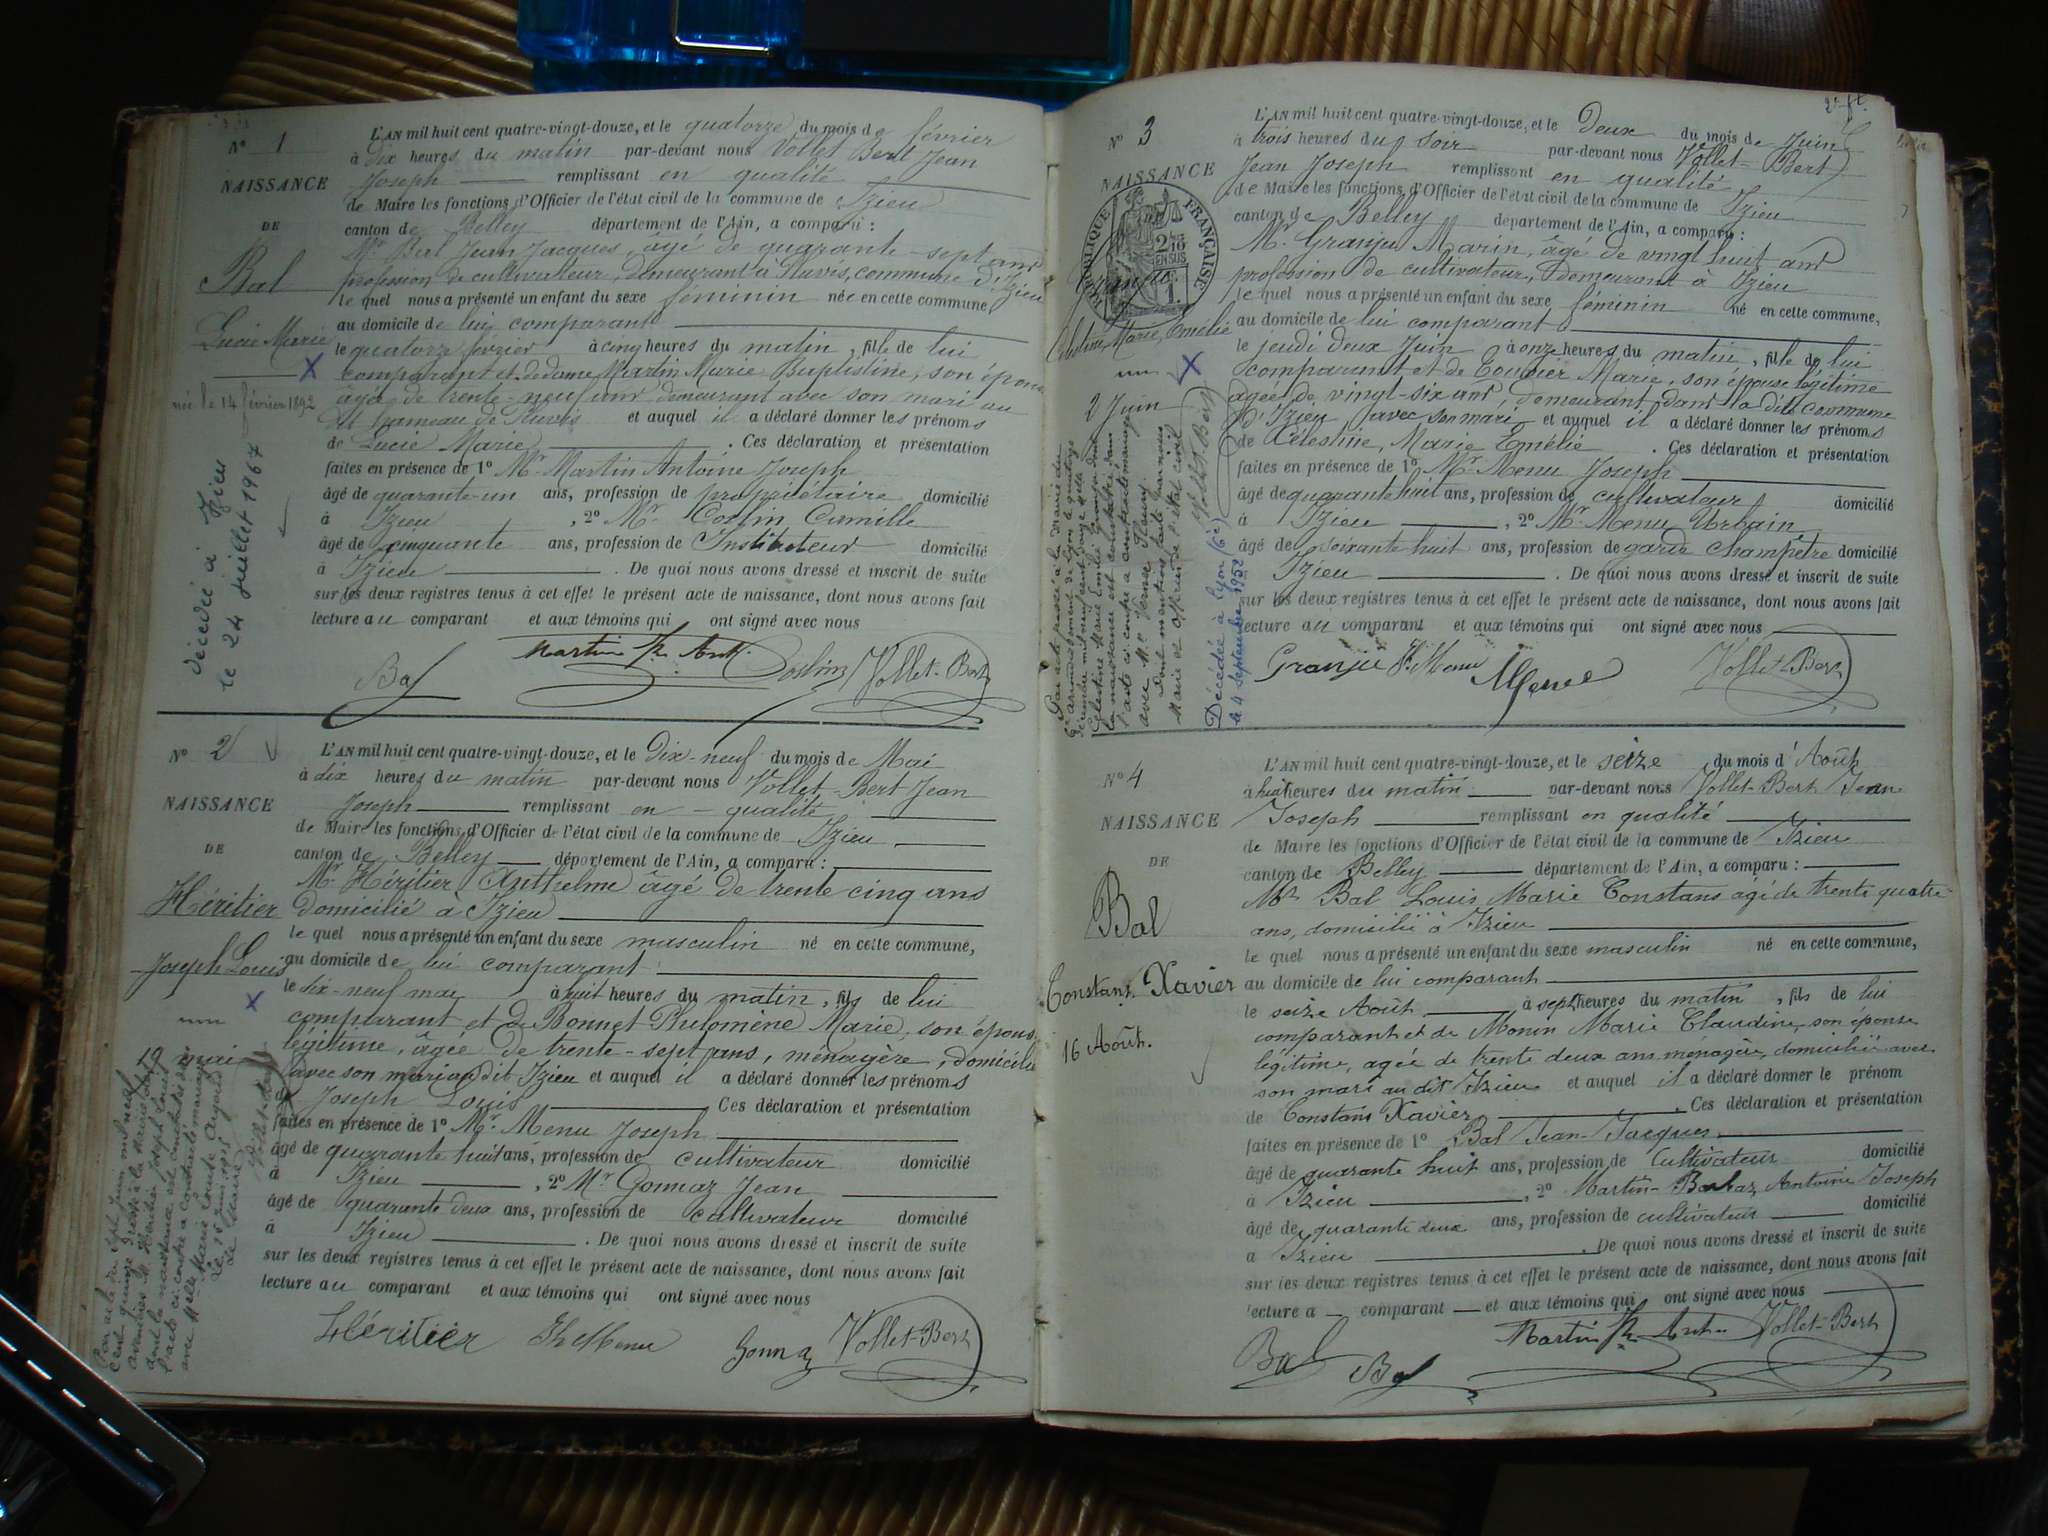 N° 1
NAISSANCE
DE
Bal
Lucie Marie
née le 14 février 1892
décédée à Izieu
le 24 juillet 1967
L'AN mil huit cent quatre-vingt-douze, et le quatorze du mois de février
à dix heures du matin par-devant nous Vollet Bert Jean
Joseph remplissant en qualité
de Maire les fonctions d'Officier de l'état civil de la commune de Izieu
canton de Belley département de l'Ain, a comparu :
Mr Bal Jean Jacques, âgé de quarante-sept ans
profession de cultivateur, demeurant à commune d'Izieu
le quel nous a présenté un enfant du sexe féminin née en cette commune,
au domicile de lui comparant
le quatorze février à cinq heures du matin, fille de lui
comparant et de dame Martin Marie Baptistine, son épouse
âgée de trente-neuf ans demeurant avec son mari au
dit hameau de et auquel il a déclaré donner les prénoms
de Lucie Marie . Ces déclaration et présentation
faites en présence de 1° Mr Martin Antoine Joseph
âgé de quarante-un ans, profession de propriétaire domicilié
à Izieu , 2° Mr Camille
âgé de cinquante ans, profession de Instituteur domicilié
à Izieu . De quoi nous avons dressé et inscrit de suite
sur les deux registres tenus à cet effet le présent acte de naissance, dont nous avons fait
lecture au comparant et aux témoins qui ont signé avec nous
Bal Martin Ant. Vollet-Bert
N° 2
NAISSANCE
DE
Héritier
Joseph Louis
19 mai
L'AN mil huit cent quatre-vingt-douze, et le Dix-neuf du mois de Mai
à dix heures du matin par-devant nous Vollet-Bert Jean
Joseph remplissant en qualité
de Maire les fonctions d'Officier de l'état civil de la commune de Izieu
canton de Belley département de l'Ain, a comparu :
Mr Héritier Anthelme âgé de trente cinq ans
domicilié à Izieu
le quel nous a présenté un enfant du sexe masculin né en cette commune,
au domicile de lui comparant
le dix-neuf mai à huit heures du matin, fils de lui
comparant et de Bonnet Philomène Marie, son épouse
légitime, âgée de trente-sept ans, ménagère, domiciliée
avec son mari au dit Izieu et auquel il a déclaré donner les prénoms
Joseph Louis Ces déclaration et présentation
faites en présence de 1° Mr Menu Joseph
âgé de quarante huit ans, profession de cultivateur domicilié
à Izieu , 2° Mr Gonnaz Jean
âgé de quarante deux ans, profession de cultivateur domicilié
à Izieu . De quoi nous avons dressé et inscrit de suite
sur les deux registres tenus à cet effet le présent acte de naissance, dont nous avons fait
lecture au comparant et aux témoins qui ont signé avec nous
Héritier Menu Gonnaz Vollet-Bert
N° 3
NAISSANCE
RÉPUBLIQUE FRANÇAISE
Granju
Célestine, Marie, Emélie
2 Juin
Décédée à Lyon (6e)
le 4 septembre 1952
L'AN mil huit cent quatre-vingt-douze, et le Deux du mois de Juin
à trois heures du soir par-devant nous Vollet-Bert
Jean Joseph remplissant en qualité
de Maire les fonctions d'Officier de l'état civil de la commune de Izieu
canton de Belley département de l'Ain, a comparu :
Mr Granju Marin, âgé de vingt huit ans
profession de cultivateur, demeurant à Izieu
le quel nous a présenté un enfant du sexe féminin né en cette commune,
au domicile de lui comparant
le jeudi deux Juin à onze heures du matin, fille de lui
comparant et de Marie, son épouse légitime
âgée de vingt-six ans, demeurant dans la dite commune
d'Izieu avec son mari et auquel il a déclaré donner les prénoms
de Célestine, Marie Emélie . Ces déclaration et présentation
faites en présence de 1° Mr Menu Joseph
âgé de quarante huit ans, profession de cultivateur domicilié
à Izieu , 2° Mr Menu Urbain
âgé de soixante huit ans, profession de garde champêtre domicilié
Izieu . De quoi nous avons dressé et inscrit de suite
sur les deux registres tenus à cet effet le présent acte de naissance, dont nous avons fait
lecture au comparant et aux témoins qui ont signé avec nous
Granju Menu Menu Vollet-Bert
N° 4
NAISSANCE
DE
Bal
Constans Xavier
16 Août.
L'AN mil huit cent quatre-vingt-douze, et le seize du mois d'Août
à huit heures du matin par-devant nous Vollet-Bert Jean
Joseph remplissant en qualité
de Maire les fonctions d'Officier de l'état civil de la commune de Izieu
canton de Belley département de l'Ain, a comparu :
Mr Bal Louis Marie Constans agé de trente quatre
ans, domicilié à Izieu
le quel nous a présenté un enfant du sexe masculin né en cette commune,
au domicile de lui comparant
le seize Août à sept heures du matin, fils de lui
comparant et de Monin Marie Claudine, son épouse
légitime, agée de trente deux ans ménagère, domiciliée avec
son mari au dit Izieu et auquel il a déclaré donner le prénom
de Constans Xavier . Ces déclaration et présentation
faites en présence de 1° Bal Jean-Jacques
âgé de quarante huit ans, profession de cultivateur domicilié
à Izieu , 2° Martin-Barbaz Antoine Joseph
âgé de quarante deux ans, profession de cultivateur domicilié
à Izieu . De quoi nous avons dressé et inscrit de suite
sur les deux registres tenus à cet effet le présent acte de naissance, dont nous avons fait
lecture a comparant et aux témoins qui ont signé avec nous
Bal Bal Martin Vollet-Bert